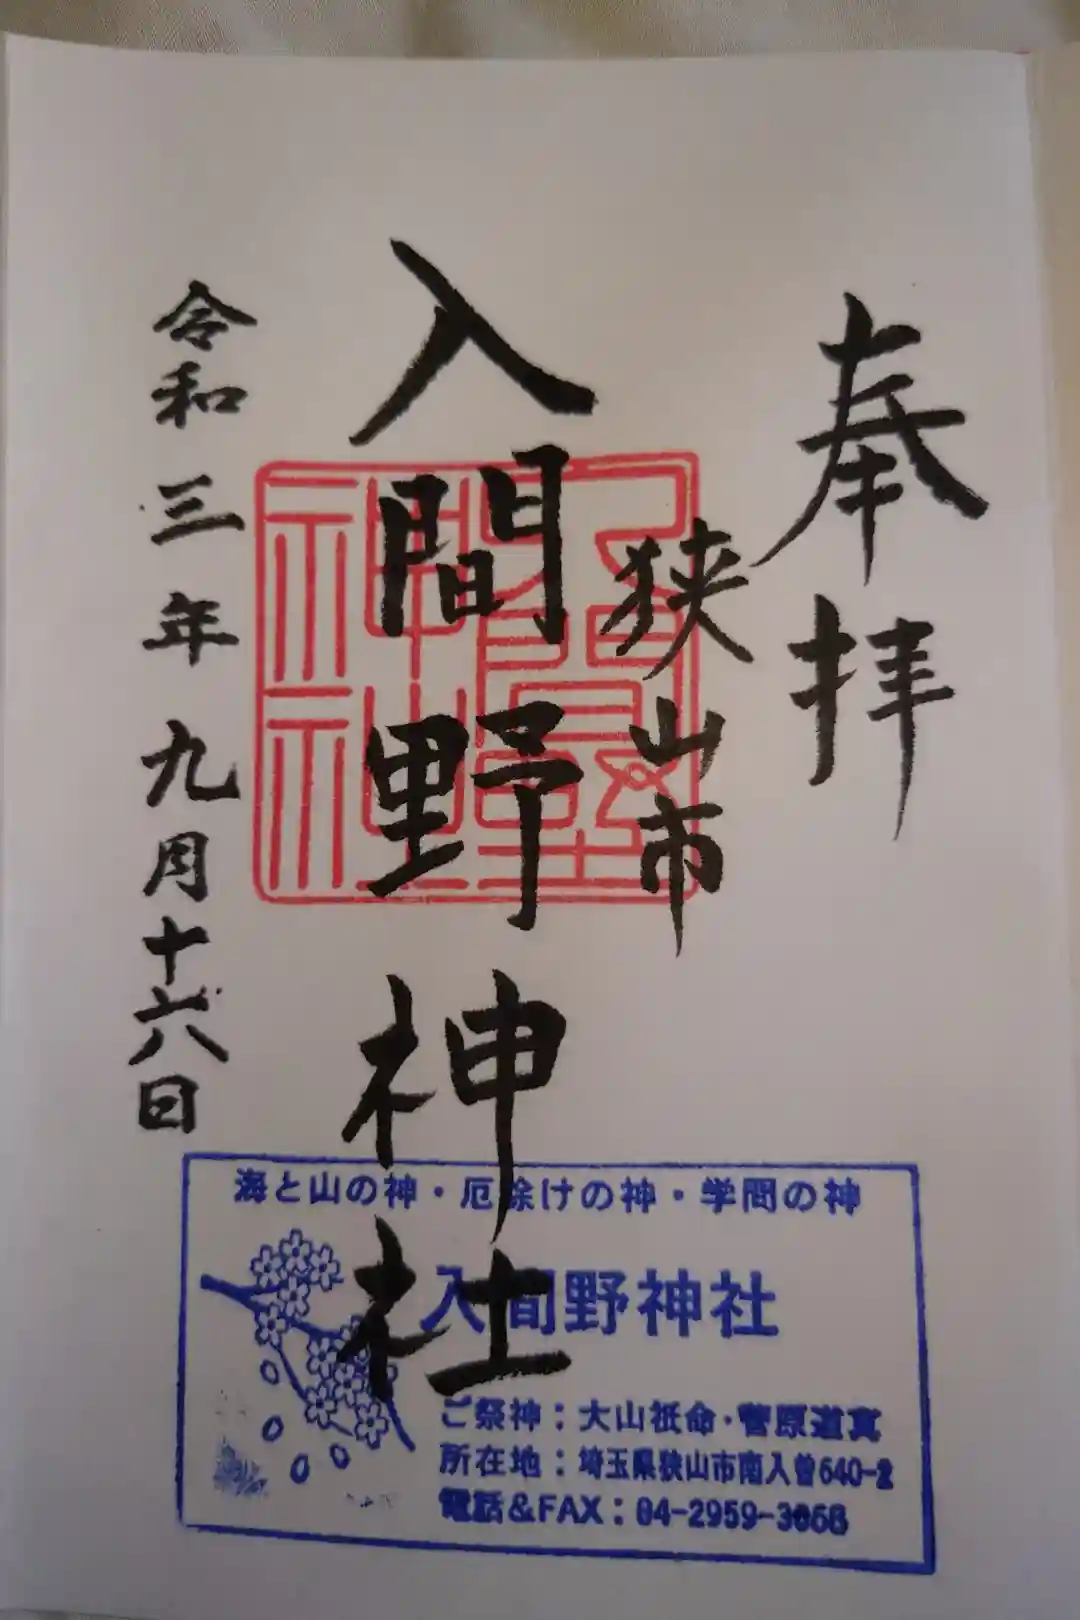 奉拝
狭山市
入間野神社
令和三年九月十六日
入間野神社
海と山の神・厄除けの神・学問の神
入間野神社
ご祭神：大山祇命・菅原道真
所在地：埼玉県狭山市南入曽640-2
電話＆FAX：04-2959-3668